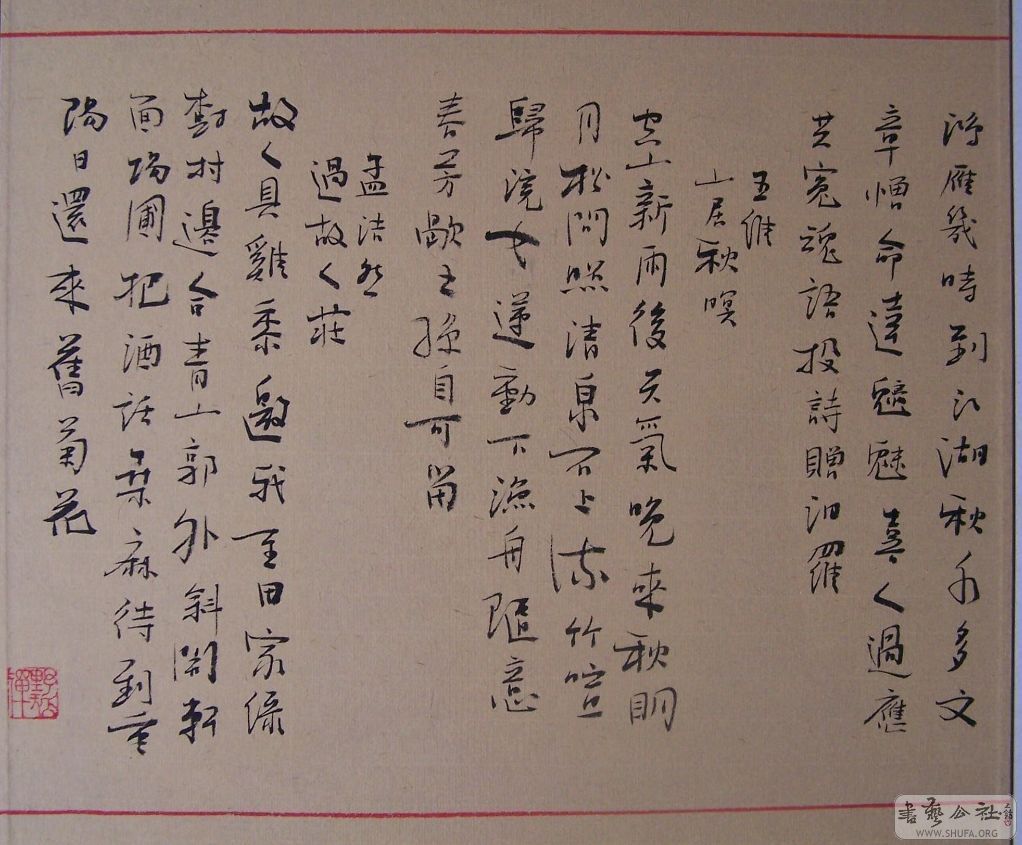 鴻雁幾時到江湖秋水多文
章憎命達魑魅喜人過應
共冤魂語投詩贈汨羅
王維
山居秋暝
空山新雨後天氣晚來秋明
月松間照清泉石上流竹喧
歸浣女蓮動下漁舟隨意
春芳歇王孫自可留
孟浩然
過故人莊
故人具雞黍邀我至田家綠
樹村邊合青山郭外斜開軒
面場圃把酒話桑麻待到重
陽日還來舊菊花
書藝公社
WWW.SHUFA.ORG